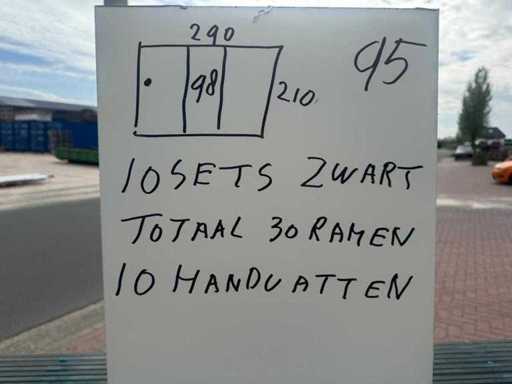 290
95
98
210
10 SETS ZWART
TOTAAL 30 RAMEN
10 HANDVATTEN